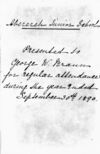 Presented to
George W. Brown
for regular attendance
during the year ended
September 30th 1890.